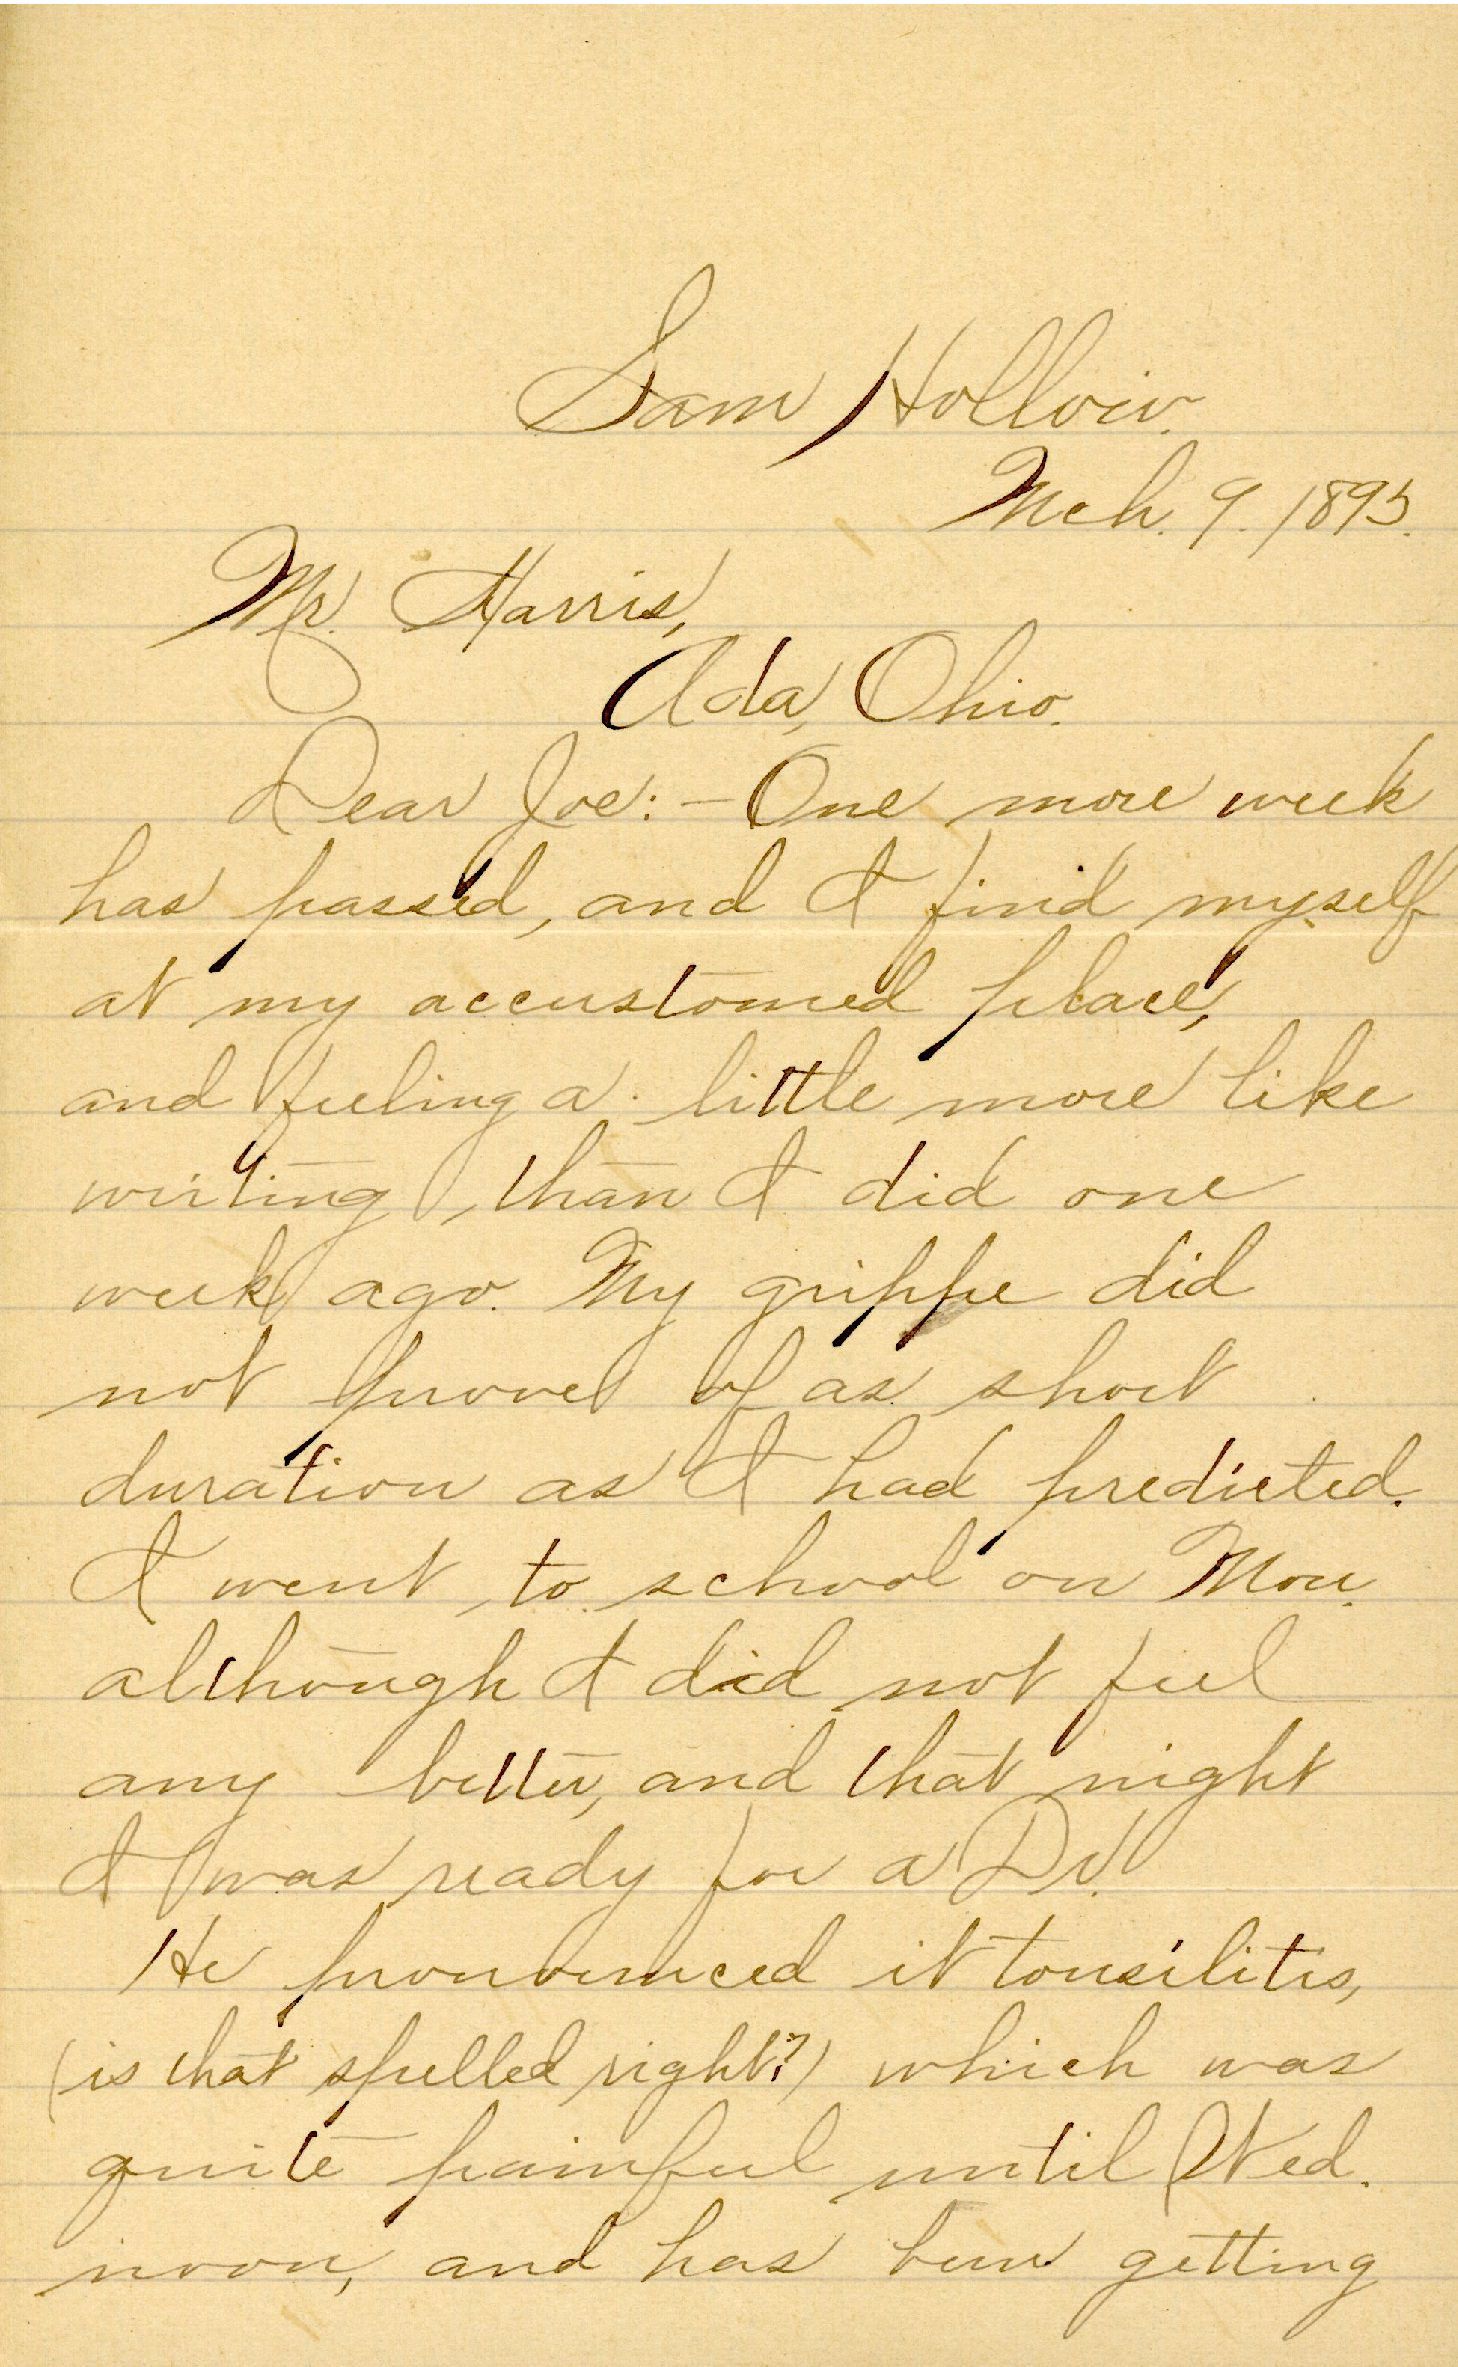 Sam Hollow.
Mch. 9. 1895.
Mr. Harris,
Ada, Ohio.
Dear Joe: — One more week
has passed, and I find myself
at my accustomed place,
and feeling a little more like
writing, than I did one
week ago. My grippe did
not prove of as short
duration as I had predicted.
I went to school on Mon.
although I did not feel
any better, and that night
I was ready for a Dr.
He pronounced it tonsilitis,
(is that spelled right?) which was
quite painful until Wed.
noon, and has been getting